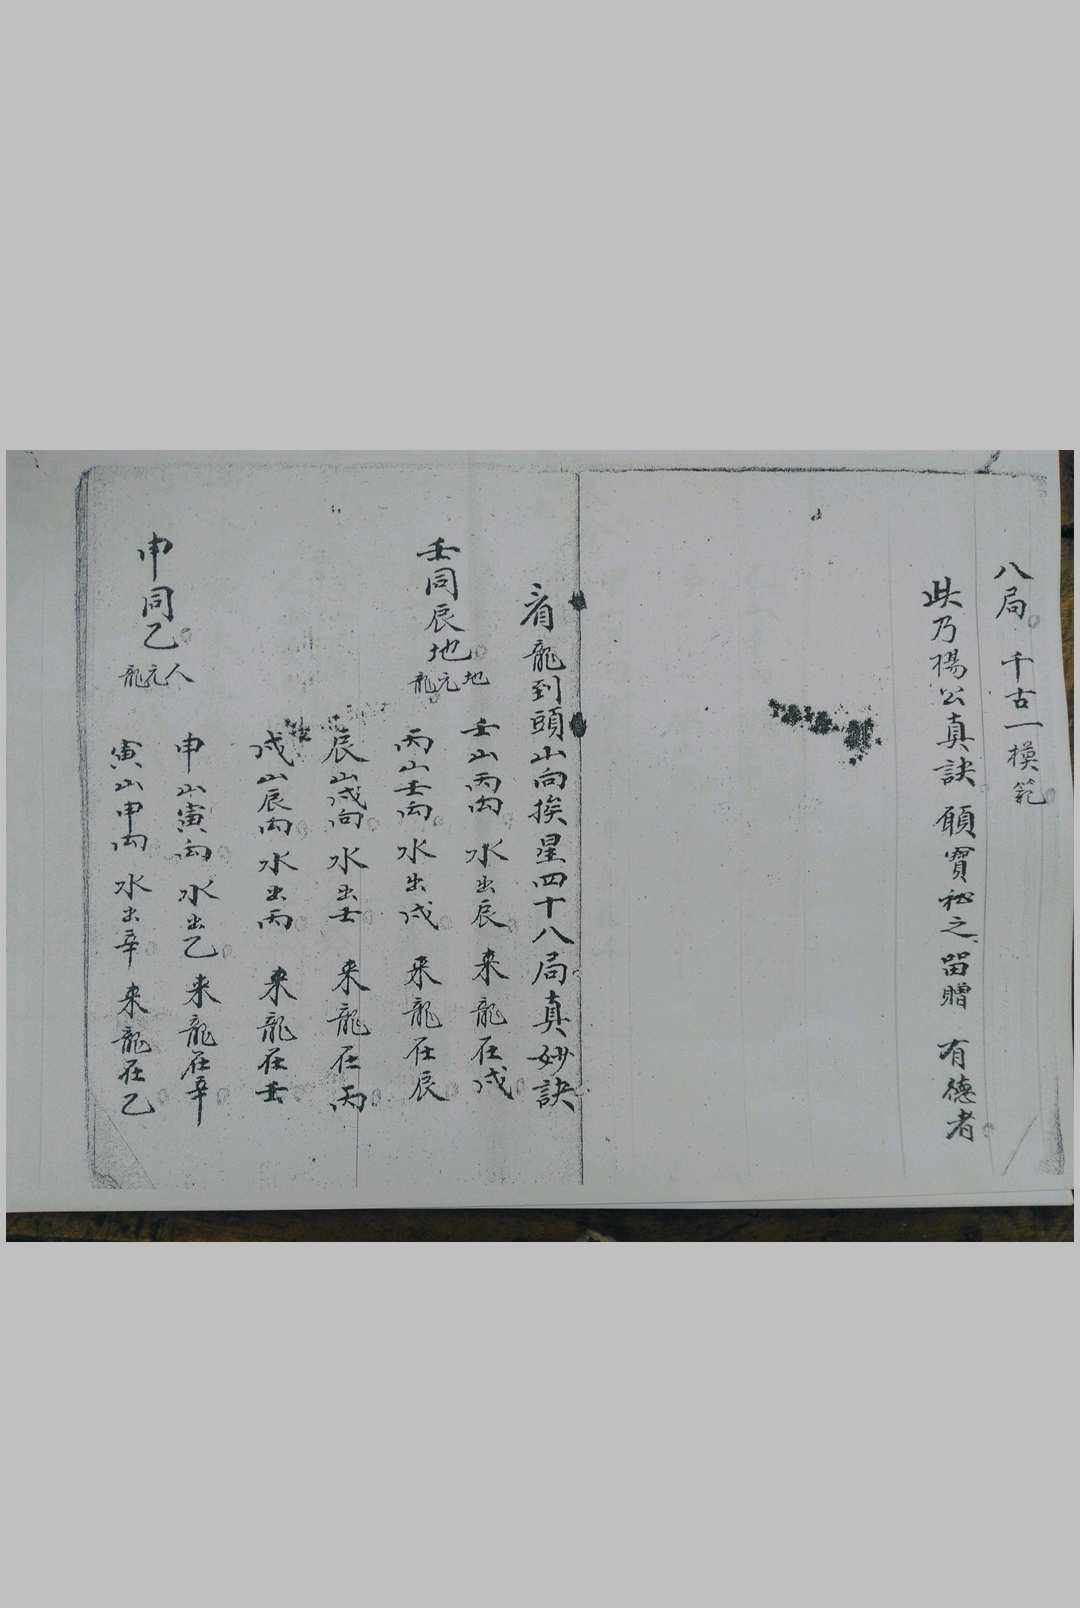 八局 千古一模範
此乃楊公真訣 願寶祕之 留贈 有德者
看龍到頭山向挨星四十八局真妙訣
壬同辰地
地元龍
壬山丙向 水出辰 来龍在戌
丙山壬向 水出戌 来龍在辰
辰山戌向 水出壬 来龍在丙
戌山辰向 水出丙 来龍在壬
申同乙
人元龍
申山寅向 水出乙 来龍在辛
寅山申向 水出辛 来龍在乙